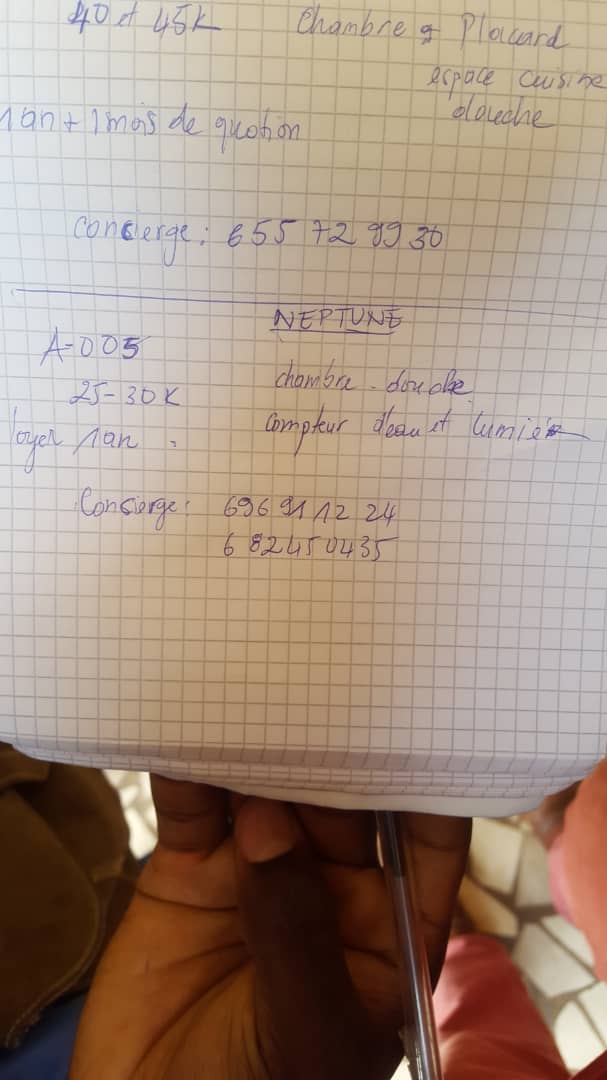 40 et 45K Chambre Placard
espace cuisine
douche
1an + 1 mois de quotion
concierge: 655 72 99 30
NEPTUNE
A-005
chambre - douche
25-30K
compteur d'eau et lumière
loyer 1an
Concierge: 696 91 12 24
6 82450435